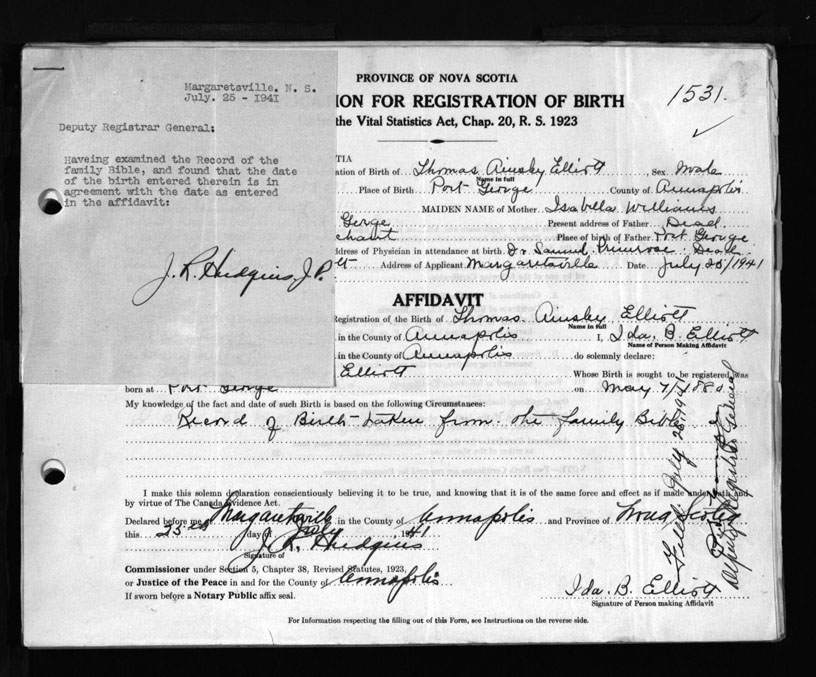 Margaretsville. N. S.
July. 25 - 1941
Deputy Registrar General:
Haveing examined the Record of the
family Bible, and found that the date
of the birth entered therein is in
agreement with the date as entered
in the affidavit:
J. R. Hudgins J.P.
PROVINCE OF NOVA SCOTIA
ION FOR REGISTRATION OF BIRTH
the Vital Statistics Act, Chap. 20, R. S. 1923
1531.
TIA
ation of Birth of Thomas Ainsley Elliott Sex Male
Name in full
Place of Birth Port George County of Annapolis
MAIDEN NAME of Mother Isabella Williams
Gerge Present address of Father Dead
chant Place of birth of Father Port George
ddress of Physician in attendance at birth Dr Samuel Primrose Dead
tt Address of Applicant Margaretsville Date July 25/1941
AFFIDAVIT
Registration of the Birth of Thomas Ainsley Elliott
Name in full
in the County of Annapolis I, Ida. B. Elliott
Name of Person Making Affidavit
in the County of Annapolis do solemnly declare:
Elliott Whose Birth is sought to be registered, was
born at Port George on May 7/188
My knowledge of the fact and date of such Birth is based on the following Circumstances:
Record of Birth taken from the family Bible
I make this solemn declaration conscientiously believing it to be true, and knowing that it is of the same force and effect as if made under oath and
by virtue of The Canada Evidence Act.
Declared before me Margaretsville in the County of Annapolis and Province of Nova Scotia
this 25th day of July 1941
J. R. Hudgins
Signature of
Commissioner under Section 5, Chapter 38, Revised Statutes, 1923,
or Justice of the Peace in and for the County of Annapolis
If sworn before a Notary Public affix seal.
Ida. B. Elliott
Signature of Person making Affidavit
For Information respecting the filling out of this Form, see Instructions on the reverse side.
Filed July 28 1941
Deputy Registrar General